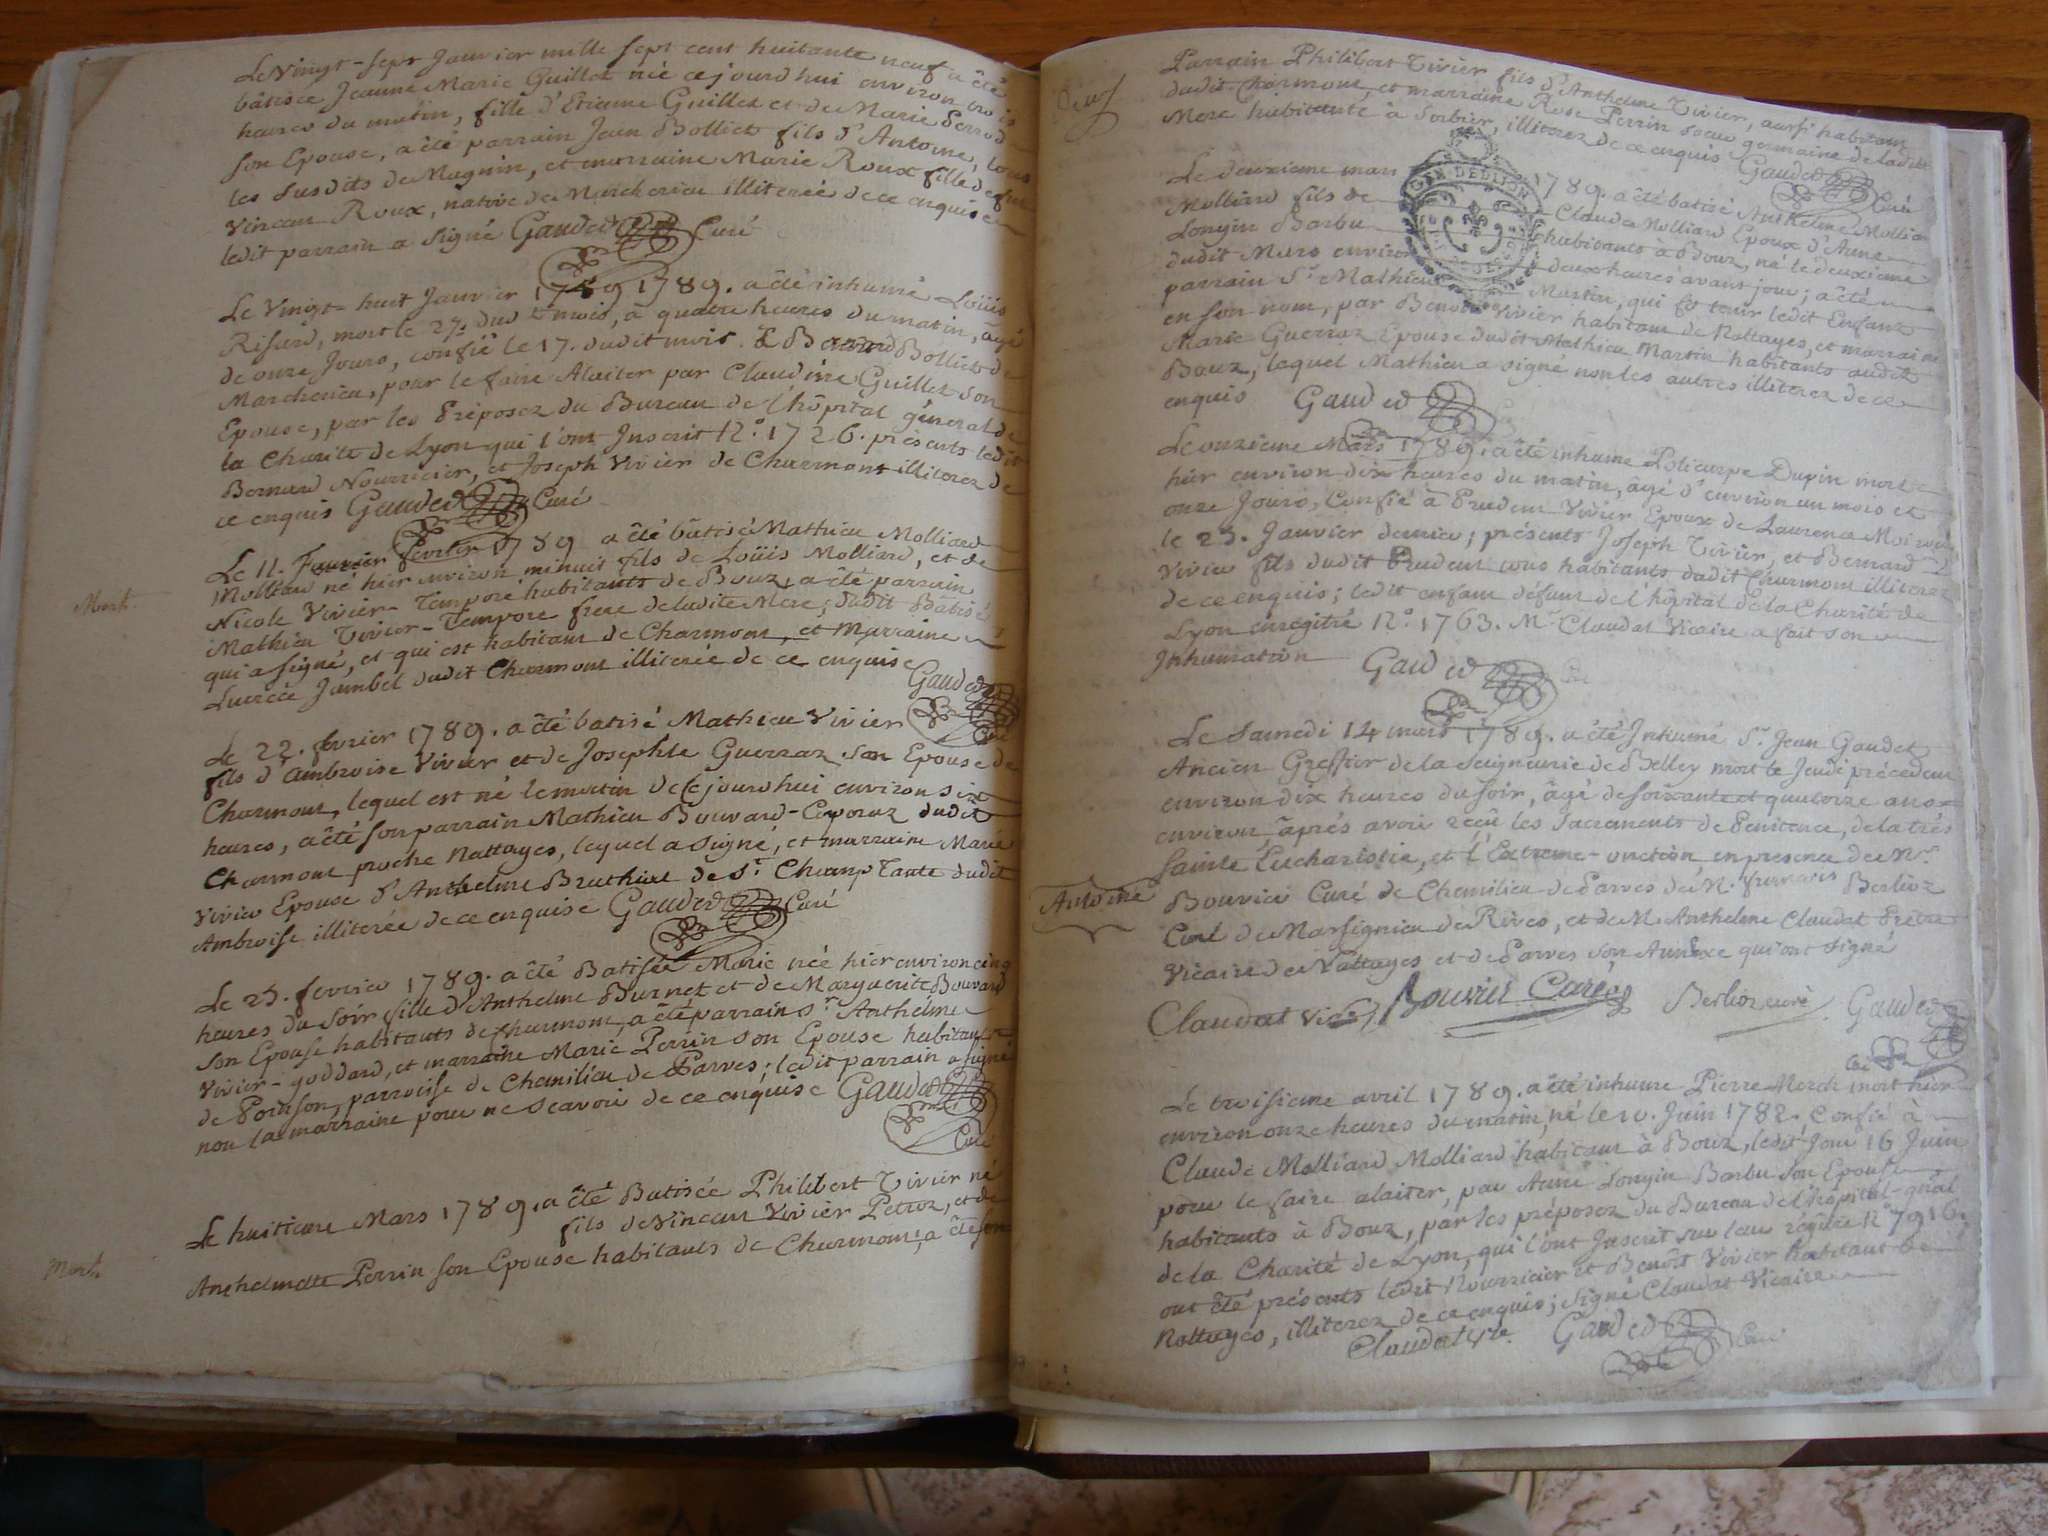 Le Vingt-sept Janvier mille sept cent huitante neuf a été
bâtisée Jeanne Marie Guillet née cejourd'hui environ trois
heures du matin, fille d'Etienne Guillet et de Marie Perrod
son Epouse, a été parrain Jean Bolliet fils d'Antoine, tous
les susdits de Magnin, et marraine Marie Roux fille de feu
Vincent Roux, native de Marcherieu illiterée de ce enquise
ledit parrain a signé Gaudet Curé
Le Vingt-huit Janvier 1789. a été inhumé Loüis
Risard, mort le 27. dud. mois, à quatre heures du matin, âgé
de onze Jours, confié le 17. dudit mois à Bernard Bolliet de
Marcherieu, pour le faire Alaiter par Claudine Guillet son
Epouse, par les Préposez du Bureau de l'hôpital général de
la Charité de Lyon qui l'ont Inscrit N.° 1726. présents ledit
Bernard Nourricier, et Joseph Vivier de Charmont illiterez de
ce enquis Gaudet Curé
Le 11. fevrier 1789 a été bâtisé Mathieu Molliard
Molliard né hier environ minuit fils de Loüis Molliard, et de
Nicole Vivier-Tempore habitants de Bouz, a été parrain
Mathieu Vivier-Tempore frere de ladite Mere; dudit Batisé
qui a signé, et qui est habitant de Charmont, et Marraine
Lucrece Jambet dudit Charmont illiterée de ce enquise
Gaudet
Curé
Mort
Le 22. fevrier 1789. a été batisé Mathieu Vivier
fils d'Ambroise Vivier et de Josephte Guerraz son Epouse de
Charmont, lequel est né le matin de cejourdhui environ six
heures, a été son parrain Mathieu Bouvard-Coporaz dudit
Charmont proche Nattages, lequel a signé, et marraine Marie
Vivier Epouse d'Anthelme Bruthiat de S.t Champ Tante dudit
Ambroise illiterée de ce enquise Gaudet Curé
Le 25. fevrier 1789. a été Batisée Marie née hier environ cinq
heures du soir fille d'Anthelme Burnet et de Marguerite Bouvard
son Epouse habitants de Charmont, a été parrain S.r Anthelme
Vivier-goddard, et marraine Marie Perrin son Epouse habitants
de Poisson, parroisse de Chemilieu de Parves; ledit parrain a signé
non la marraine pour ne scavoir de ce enquise Gaudet
Curé
Le huitieme Mars 1789. a été Batisée Philibert Vivier né
fils de Vincent Vivier Petroz, et de
Anthelmette Perrin son Epouse habitants de Charmont, a été son
Mort
Parrain Philibert Vivier fils d'Anthelme Vivier, aussi habitant
dudit Charmont, et marraine Rose Perrin soeur germaine de ladite
Mere habitante à Sorbier, illiterez de ce enquis Gaudet
Curé
Le deuxieme mars 1789. a été batisé Anthelme Mollion
Molliard fils de Claude Molliard Epoux d'Anne
Longin Barbu habitants à Bouz, né le deuxieme
dudit Mars environ deux heures avant jour; a été
parrain S.r Mathieu Martin, qui fit tenir ledit Enfant
en son nom, par Benoit Vivier habitant de Nattages, et marraine
Marie Guerraz Epouse dudit Mathieu Martin habitants audit
Bouz, lequel Mathieu a signé non les autres illiterez de ce
enquis Gaudet
GEN DE DIJON
Le onzieme Mars 1789. a été inhumé Policarpe Dupin mort
hier environ dix heures du matin, âgé d'environ un mois et
onze Jours, Confié à Prudent Vivier Epoux de Laurence Moiroud
le 25. Janvier dernier; présents Joseph Vivier, et Bernard
Vivier fils dudit Prudent tous habitants dudit Charmont illiterez
de ce enquis; ledit enfant défunt de l'hôpital de la Charité de
Lyon enregitré N.° 1763. M.r Claudat Vicaire a fait son
Inhumation Gaudet
Le Samedi 14 mars 1789. a été Inhumé S.r Jean Gaudet
Ancien Greffier de la Seigneurie de Belley mort le Jeudi précedent
environ dix heures du soir, âgé de soixante et quatorze ans
environ, après avoir reçu les Sacrements de Penitence, de la très
Sainte Eucharistie, et l'Extreme-onction en presence de M.r
Antoine
Bouvier Curé de Chemilieu de Parves de M. francois Berlioz
Curé de Marsignieu de Rives, et de M. Anthelme Claudat Prêtre
Vicaire de Nattages et de Parves son Annexe qui ont signé
Claudat Vic.e Bouvier Curé Berlioz curé Gaudet
Le troisieme avril 1789. a été inhumé Pierre Merck mort hier
environ onze heures du matin, né le 10. Juin 1782. Confié à
Claude Molliard Molliard habitant à Bouz, ledit Jour 16 Juin
pour le faire alaiter, par Anne Longin Barbu son Epouse
habitants à Bouz, par les préposez du Bureau de l'hôpital-gñal
de la Charité de Lyon, qui l'ont Inscrit sur leur régitre N.° 7916.
ont été présents ledit Nourricier et Benoît Vivier habitant de
Nattages, illiterez de ce enquis; Signé Claudat Vicaire
Claudat Vic.e Gaudet Curé